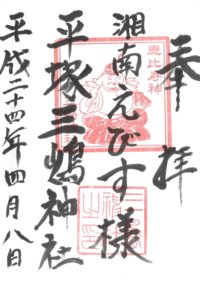 奉拝
湘南えびす様
平塚三嶋神社
平成二十四年四月八日
恵比寿神